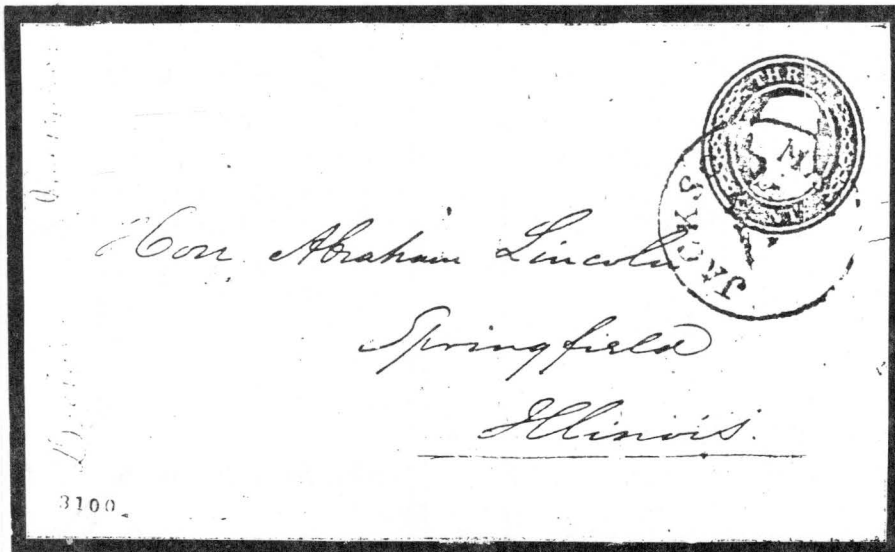 THREE
JACKS
Hon Abraham Lincoln
Springfield
Illinois.
3100